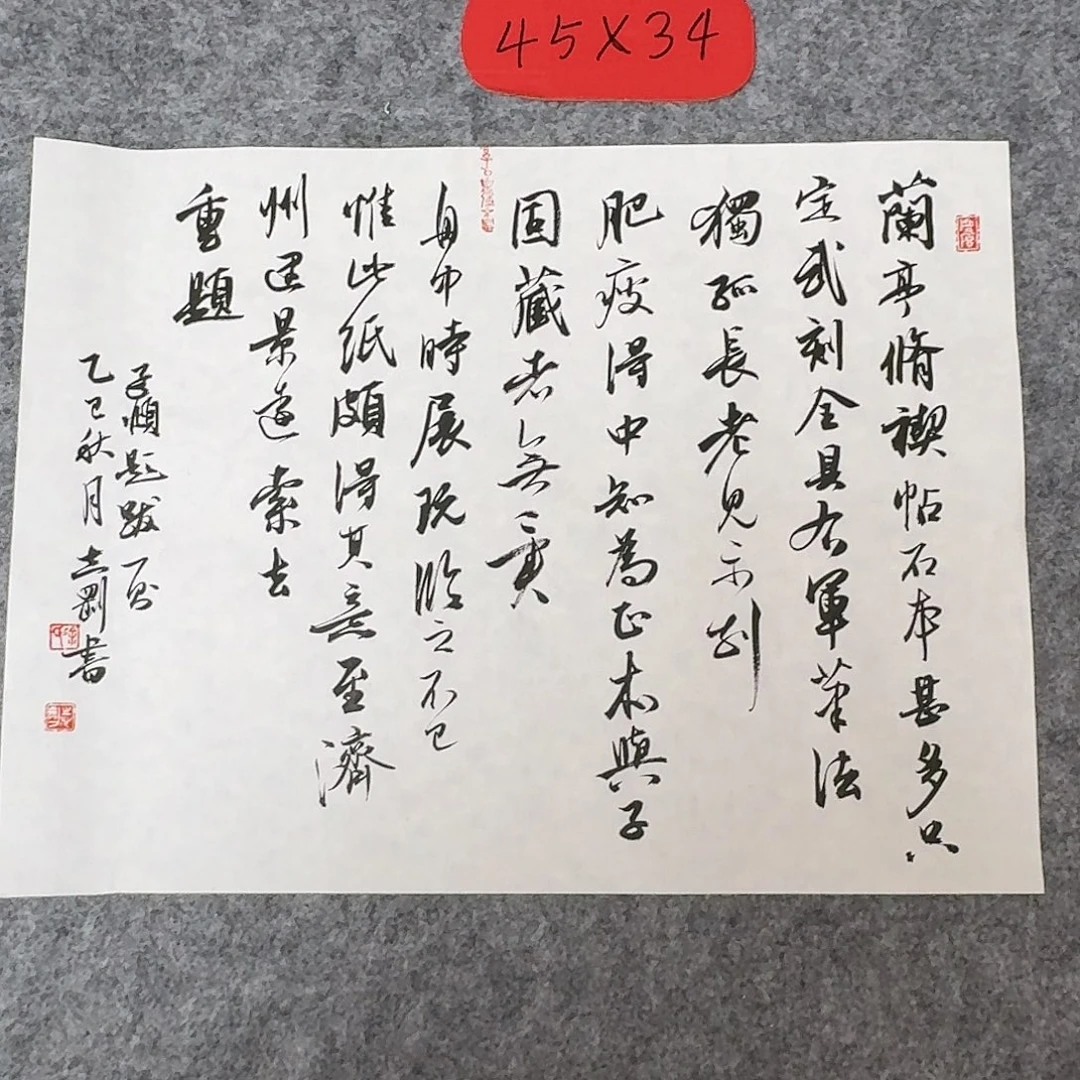 45X34
蘭亭脩禊帖石本甚多只
定武刻全具右軍筆法
獨孤長老見示刻
肥瘦得中知為正本與子
固藏者無異
舟中時展玩臨之不已
惟此紙頗得其意至濟
州遇景遠索去
重題
子頫題跋一則
乙巳秋月志剛書